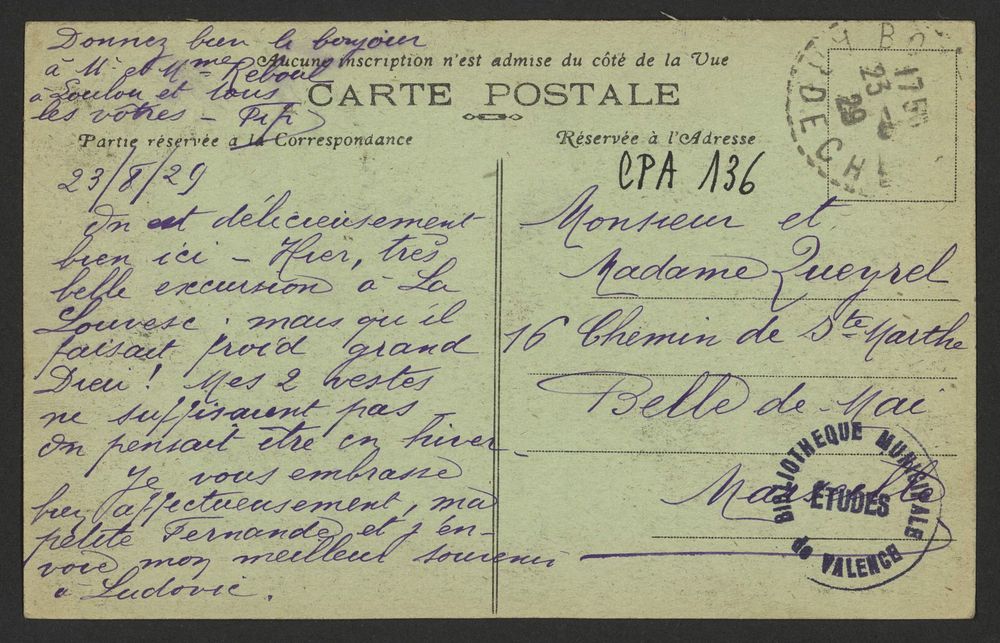 Donnez bien le bonjour
à Mr et Mme Reboul
à Loulou et tous
les vôtres – Fifi
Aucune inscription n'est admise du côté de la Vue
CARTE POSTALE
Partie réservée à la Correspondance
Réservée à l'Adresse
CPA 136
23/8/29
On est délicieusement
bien ici – Hier, très
belle excursion à La
Louvesc. mais qu'il
faisait froid grand
Dieu ! Mes 2 vestes
ne suffisaient pas
on pensait être en hiver –
Je vous embrasse
bien affectueusement, ma
petite Fernande et j'en-
voie mon meilleur souvenir
à Ludovic.
Monsieur et
Madame Queyrel
16 Chemin de Ste Marthe
Belle de Mai
Marseille
17 5
23 - 8
29
ARDECHE
BIBLIOTHEQUE MUNICIPALE
ETUDES
de VALENCE